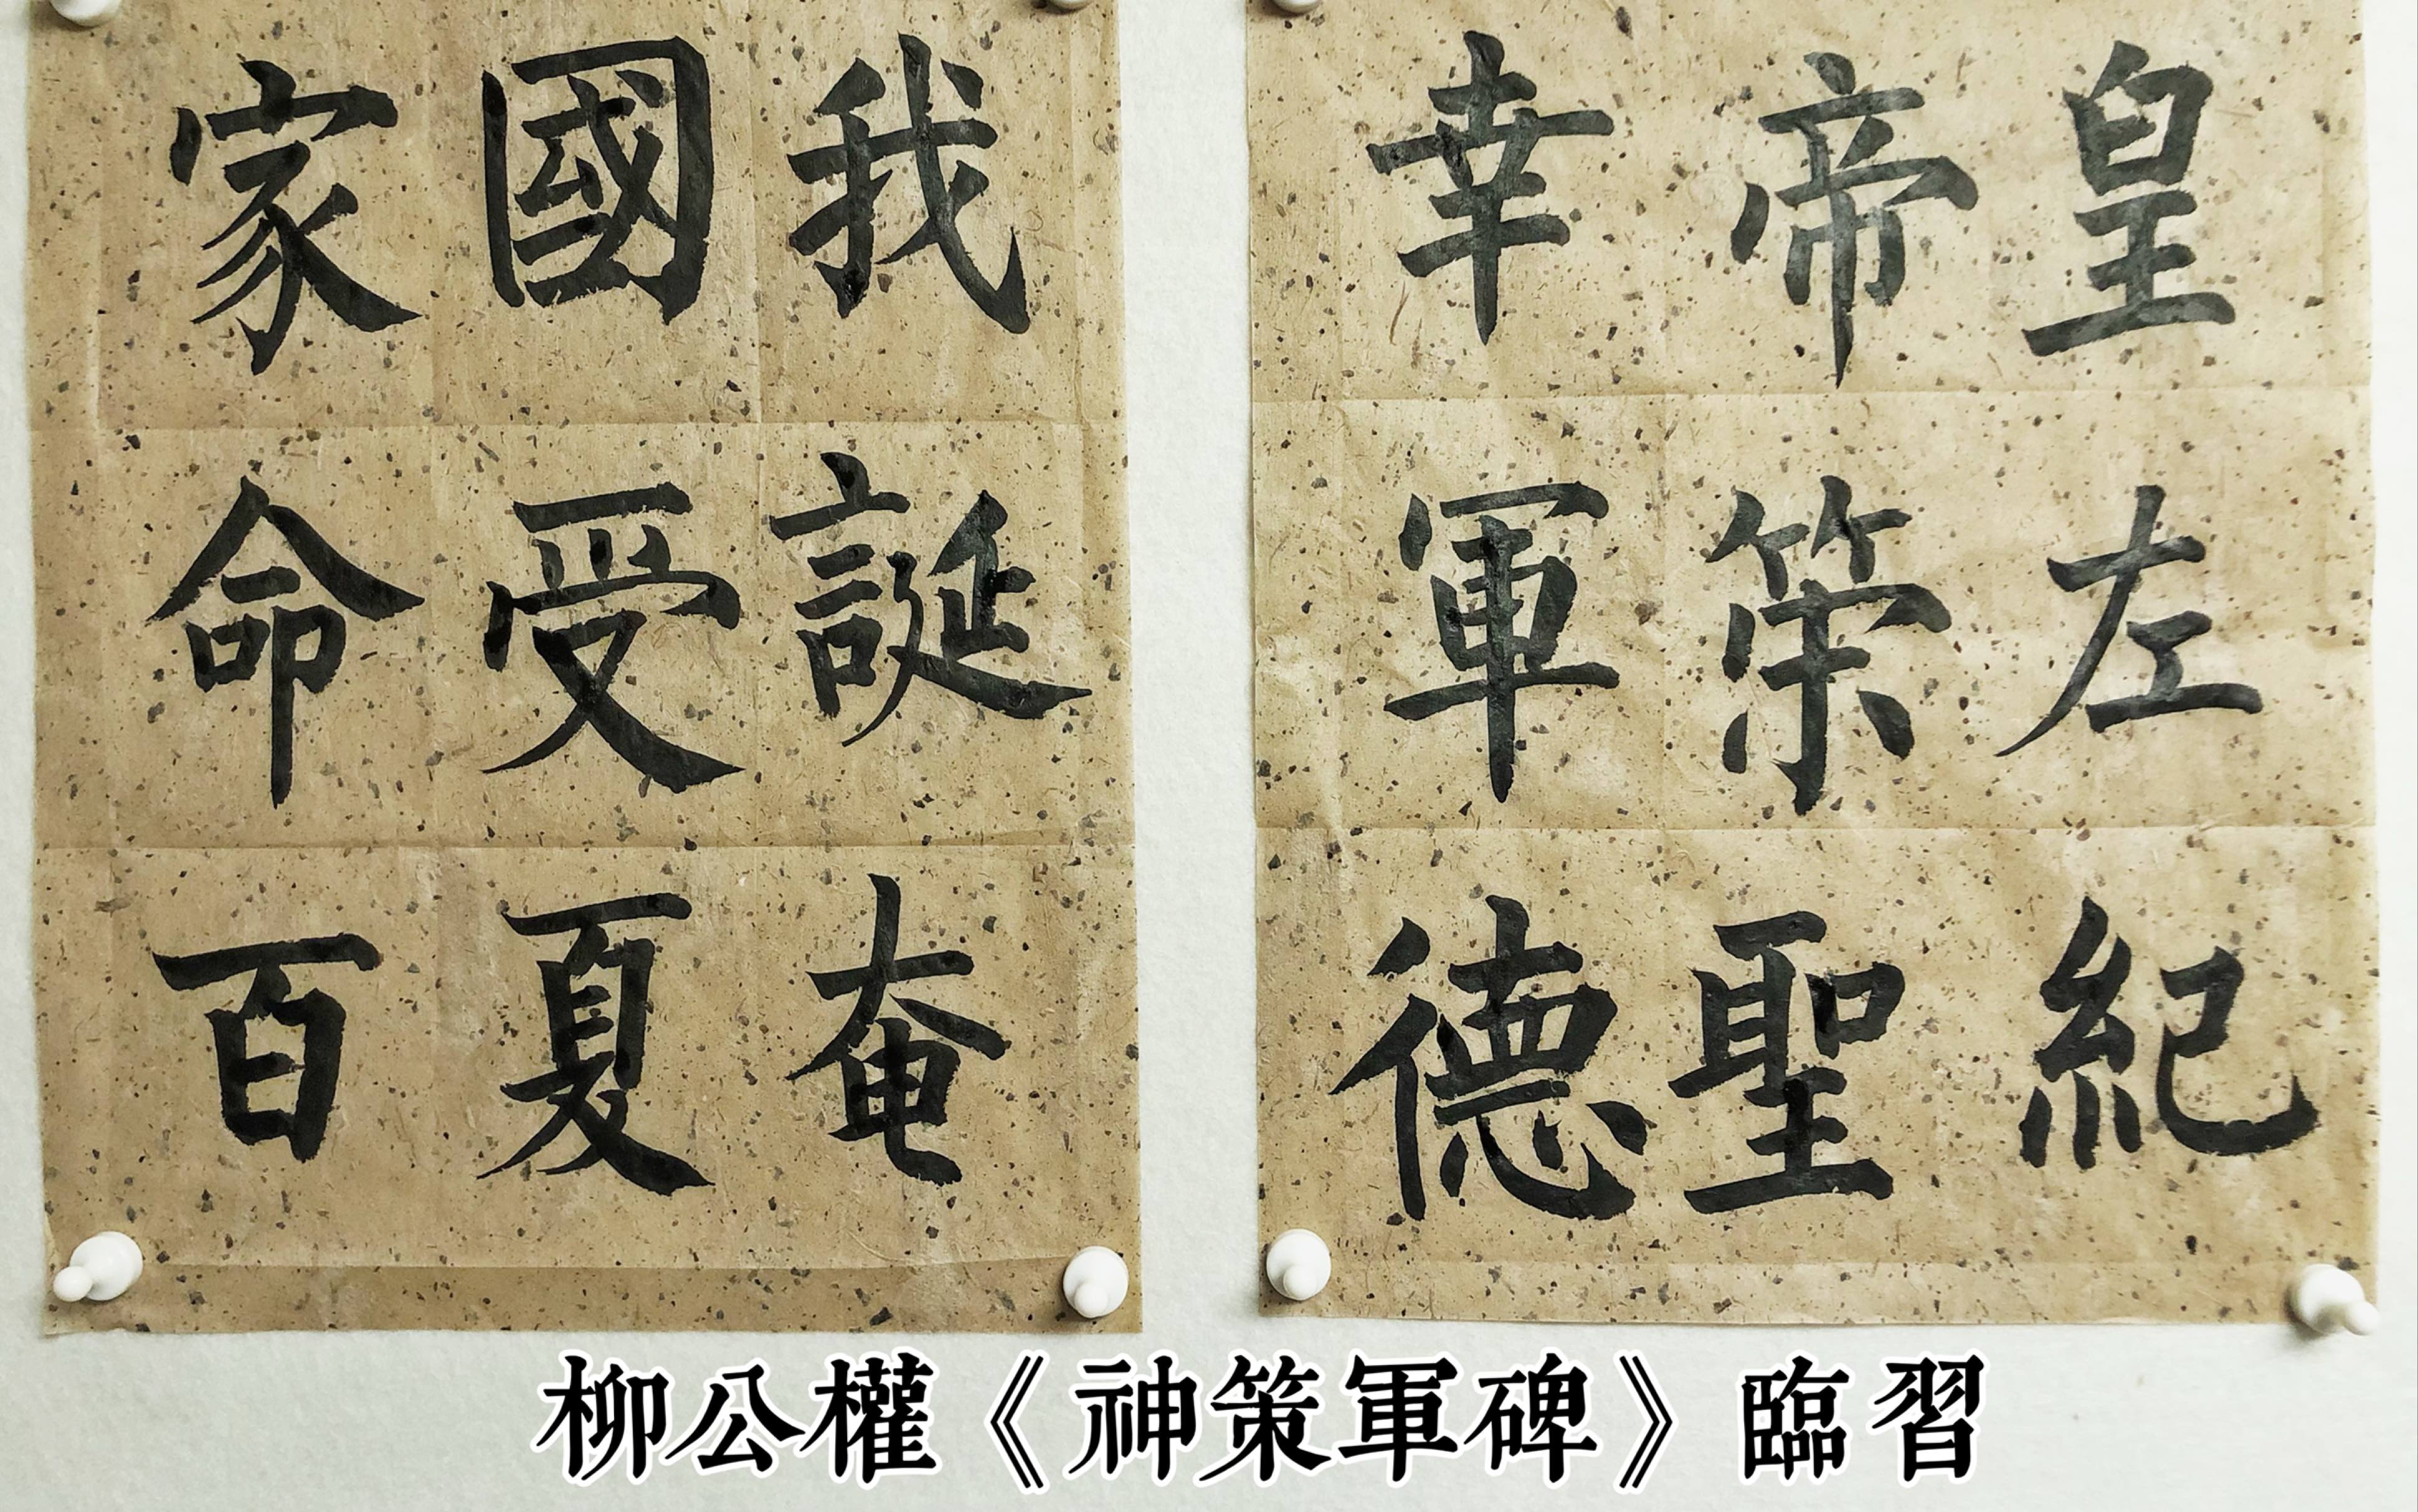 皇帝幸
左策軍
紀聖德
我國家
誕受命
奄夏百
柳公權《神策軍碑》臨習